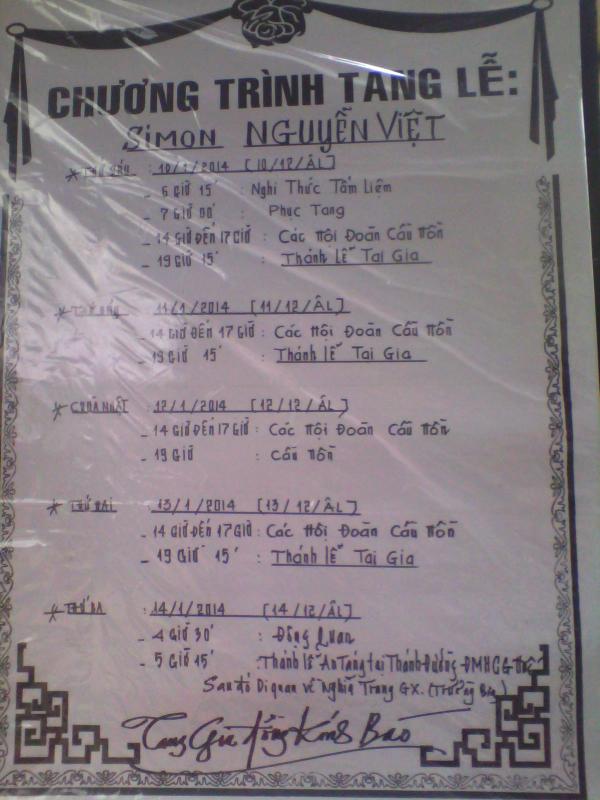 CHƯƠNG TRÌNH TANG LỄ:
SIMON NGUYỄN VIỆT
* THỨ SÁU : 10/1/2014 [10/12/ÂL]
- 6 GIỜ 15' : Nghi Thức Tẩm Liệm
- 7 GIỜ 00' : Phục Tang
- 14 GIỜ ĐẾN 17 GIỜ : Các Hội Đoàn Cầu Hồn
- 19 GIỜ 15' : Thánh Lễ Tại Gia
* THỨ BẢY : 11/1/2014 [11/12/ÂL]
- 14 GIỜ ĐẾN 17 GIỜ : Các Hội Đoàn Cầu Hồn
- 19 GIỜ 15' : Thánh Lễ Tại Gia
* CHÚA NHẬT : 12/1/2014 [12/12/ÂL]
- 14 GIỜ ĐẾN 17 GIỜ : Các Hội Đoàn Cầu Hồn
- 19 GIỜ : Cầu Hồn
* THỨ HAI : 13/1/2014 [13/12/ÂL]
- 14 GIỜ ĐẾN 17 GIỜ : Các Hội Đoàn Cầu Hồn
- 19 GIỜ 15' : Thánh Lễ Tại Gia
* THỨ BA : 14/1/2014 [14/12/ÂL]
- 4 GIỜ 30' : Động Quan
- 5 GIỜ 15' : Thánh lễ An Táng tại Thánh Đường ĐMHCG
Sau đó Di quan về Nghĩa Trang GX.
Tang Gia Đồng Kính Báo